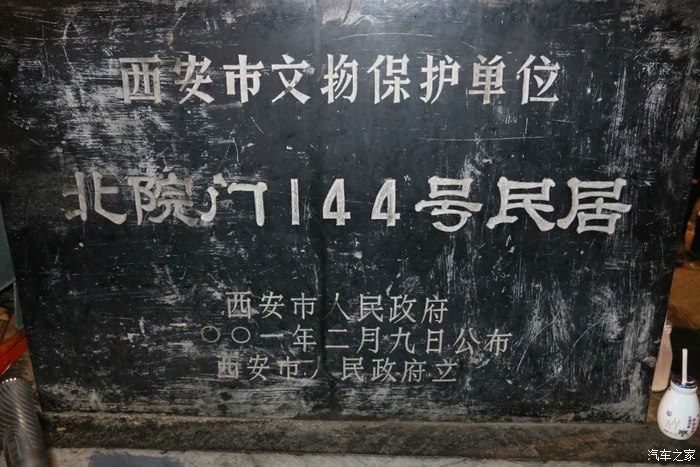 西安市文物保护单位
北院门144号民居
西安市人民政府
〇〇一年二月九日公布
西安市人民政府立
汽车之家